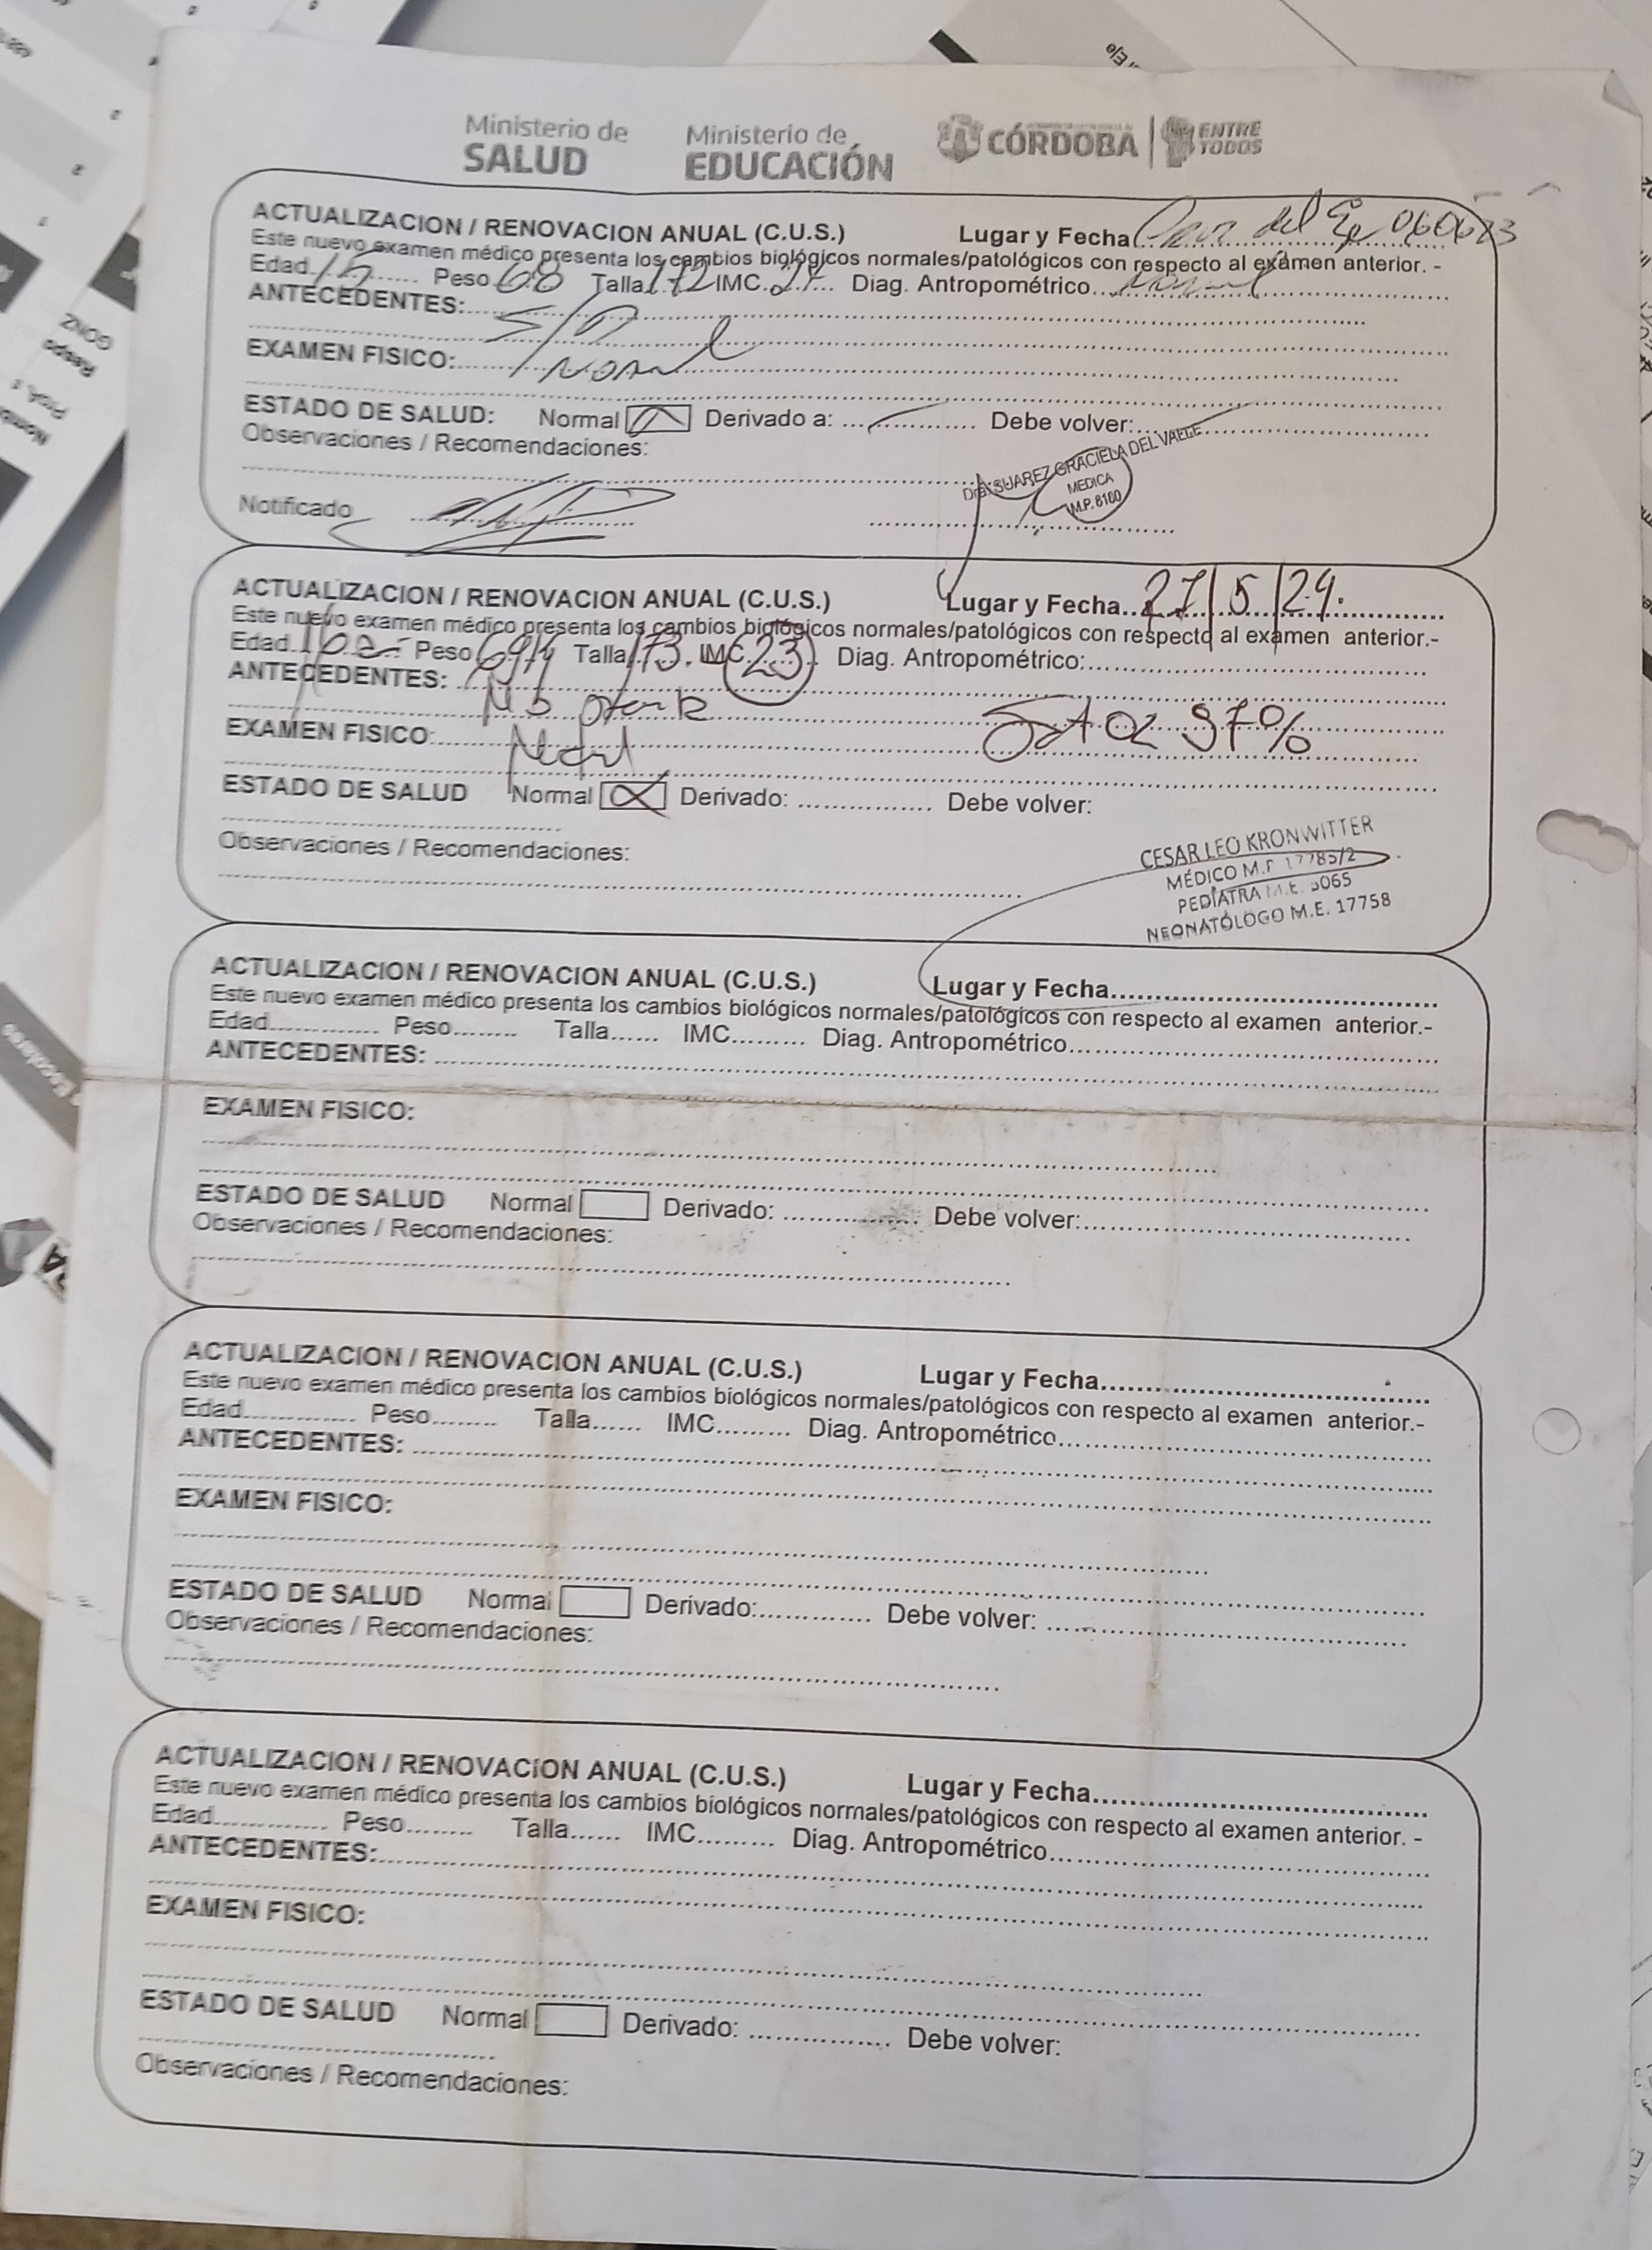 Ministerio de
SALUD
Ministerio de
EDUCACIÓN
CÓRDOBA
ENTRE
TODOS
ACTUALIZACION / RENOVACION ANUAL (C.U.S.) Lugar y Fecha del 060623
Este nuevo examen médico presenta los cambios biológicos normales/patológicos con respecto al exámen anterior. -
Edad 15 Peso 68 Talla 172 IMC Diag. Antropométrico Normal
ANTECEDENTES:
EXAMEN FISICO:
ESTADO DE SALUD: Normal Derivado a: Debe volver:
Observaciones / Recomendaciones:
Dra. SUAREZ GRACIELA DEL VALLE
MEDICA
M.P. 8160
Notificado
ACTUALIZACION / RENOVACION ANUAL (C.U.S.) Lugar y Fecha 27/5/24.
Este nuevo examen médico presenta los cambios biológicos normales/patológicos con respecto al examen anterior.-
Edad 16a Peso Talla 173 IMC 23 Diag. Antropométrico:
ANTECEDENTES:
SatO2 97%
EXAMEN FISICO:
ESTADO DE SALUD Normal Derivado: Debe volver:
Observaciones / Recomendaciones:
CESAR LEO KRONWITTER
MÉDICO M.P. 17785/2
PEDIATRA M.E. 5065
NEONATÓLOGO M.E. 17758
ACTUALIZACION / RENOVACION ANUAL (C.U.S.) Lugar y Fecha
Este nuevo examen médico presenta los cambios biológicos normales/patológicos con respecto al examen anterior.-
Edad Peso Talla IMC Diag. Antropométrico
ANTECEDENTES:
EXAMEN FISICO:
ESTADO DE SALUD Normal Derivado: Debe volver:
Observaciones / Recomendaciones:
ACTUALIZACION / RENOVACION ANUAL (C.U.S.) Lugar y Fecha
Este nuevo examen médico presenta los cambios biológicos normales/patológicos con respecto al examen anterior.-
Edad Peso Talla IMC Diag. Antropométrico
ANTECEDENTES:
EXAMEN FISICO:
ESTADO DE SALUD Normal Derivado: Debe volver:
Observaciones / Recomendaciones:
ACTUALIZACION / RENOVACION ANUAL (C.U.S.) Lugar y Fecha
Este nuevo examen médico presenta los cambios biológicos normales/patológicos con respecto al examen anterior. -
Edad Peso Talla IMC Diag. Antropométrico
ANTECEDENTES:
EXAMEN FISICO:
ESTADO DE SALUD Normal Derivado: Debe volver:
Observaciones / Recomendaciones: